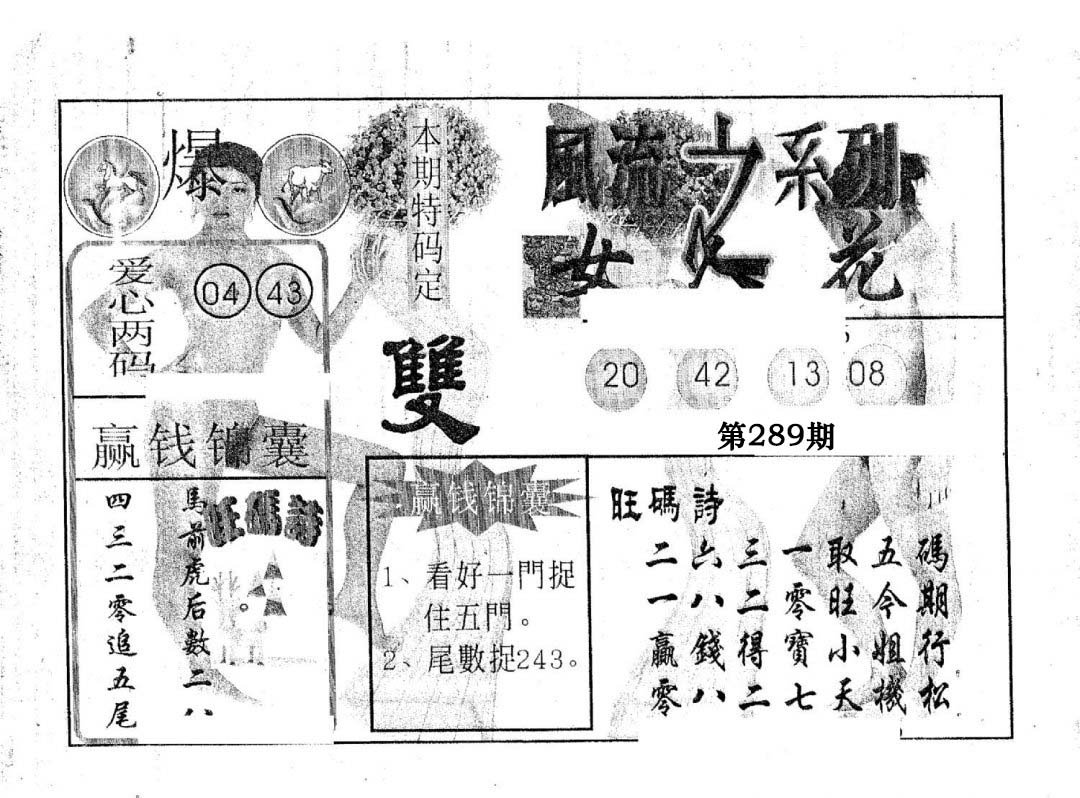 爆
爱心两码
04 43
赢钱锦囊
馬前虎后数二八
四三二零追五尾
旺碼詩
本期特码定
雙
风流女人花系列
赢钱锦囊
1、看好一門捉
住五門。
2、尾數捉243。
20 42 13 08
第289期
旺碼詩
碼期行松
五今姐機
取旺小天
一零寶七
三二得二
六八錢八
二一贏零